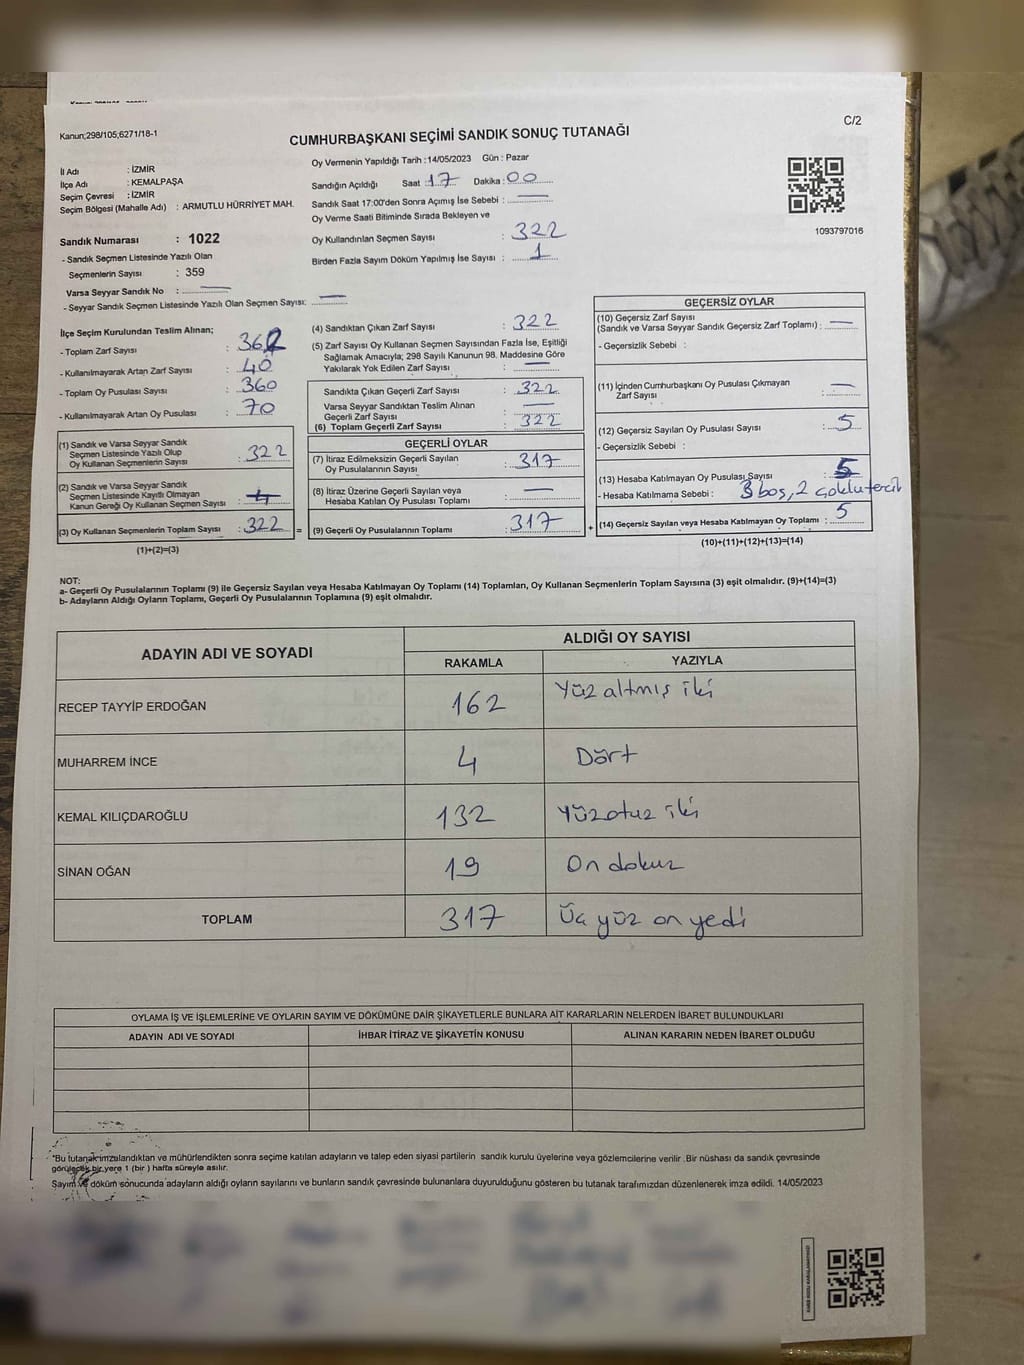 Kanun;298/105,6271/18-1
C/2
CUMHURBAŞKANI SEÇİMİ SANDIK SONUÇ TUTANAĞI
İl Adı : İZMİR
İlçe Adı : KEMALPAŞA
Seçim Çevresi : İZMİR
Seçim Bölgesi (Mahalle Adı) : ARMUTLU HÜRRİYET MAH.
Sandık Numarası : 1022
- Sandık Seçmen Listesinde Yazılı Olan
Seçmenlerin Sayısı : 359
Varsa Seyyar Sandık No :
- Seyyar Sandık Seçmen Listesinde Yazılı Olan Seçmen Sayısı:
Oy Vermenin Yapıldığı Tarih :14/05/2023 Gün : Pazar
Sandığın Açıldığı Saat 17 Dakika :00
Sandık Saat 17:00'den Sonra Açımış İse Sebebi :
Oy Verme Saati Bitiminde Sırada Bekleyen ve
Oy Kullandırılan Seçmen Sayısı : 322
Birden Fazla Sayım Döküm Yapılmış İse Sayısı : 1
1093797016
İlçe Seçim Kurulundan Teslim Alınan;
- Toplam Zarf Sayısı :
- Kullanılmayarak Artan Zarf Sayısı : 40
- Toplam Oy Pusulası Sayısı : 360
- Kullanılmayarak Artan Oy Pusulası : 70
(1) Sandık ve Varsa Seyyar Sandık
Seçmen Listesinde Yazılı Olup
Oy Kullanan Seçmenlerin Sayısı : 322
(2) Sandık ve Varsa Seyyar Sandık
Seçmen Listesinde Kayıtlı Olmayan
Kanun Gereği Oy Kullanan Seçmen Sayısı :
(3) Oy Kullanan Seçmenlerin Toplam Sayısı : 322 =
(1)+(2)=(3)
(4) Sandıktan Çıkan Zarf Sayısı : 322
(5) Zarf Sayısı Oy Kullanan Seçmen Sayısından Fazla İse, Eşitliği
Sağlamak Amacıyla; 298 Sayılı Kanunun 98. Maddesine Göre
Yakılarak Yok Edilen Zarf Sayısı :
Sandıkta Çıkan Geçerli Zarf Sayısı : 322
Varsa Seyyar Sandıktan Teslim Alınan
Geçerli Zarf Sayısı :
(6) Toplam Geçerli Zarf Sayısı : 322
GEÇERLİ OYLAR
(7) İtiraz Edilmeksizin Geçerli Sayılan
Oy Pusulalarının Sayısı : 317
(8) İtiraz Üzerine Geçerli Sayılan veya
Hesaba Katılan Oy Pusulası Toplamı :
(9) Geçerli Oy Pusulalarının Toplamı : 317 +
GEÇERSİZ OYLAR
(10) Geçersiz Zarf Sayısı
(Sandık ve Varsa Seyyar Sandık Geçersiz Zarf Toplamı) :
- Geçersizlik Sebebi :
(11) İçinden Cumhurbaşkanı Oy Pusulası Çıkmayan
Zarf Sayısı :
(12) Geçersiz Sayılan Oy Pusulası Sayısı : 5
- Geçersizlik Sebebi :
(13) Hesaba Katılmayan Oy Pusulası Sayısı : 5
- Hesaba Katılmama Sebebi : 3 boş, 2 çoklu tercih
(14) Geçersiz Sayılan veya Hesaba Katılmayan Oy Toplamı : 5
(10)+(11)+(12)+(13)=(14)
NOT:
a- Geçerli Oy Pusulalarının Toplamı (9) ile Geçersiz Sayılan veya Hesaba Katılmayan Oy Toplamı (14) Toplamları, Oy Kullanan Seçmenlerin Toplam Sayısına (3) eşit olmalıdır. (9)+(14)=(3)
b- Adayların Aldığı Oyların Toplamı, Geçerli Oy Pusulalarının Toplamına (9) eşit olmalıdır.
ADAYIN ADI VE SOYADI
ALDIĞI OY SAYISI
RAKAMLA YAZIYLA
RECEP TAYYİP ERDOĞAN 162 Yüz altmış iki
MUHARREM İNCE 4 Dört
KEMAL KILIÇDAROĞLU 132 Yüz otuz iki
SİNAN OĞAN 19 On dokuz
TOPLAM 317 Üç yüz on yedi
OYLAMA İŞ VE İŞLEMLERİNE VE OYLARIN SAYIM VE DÖKÜMÜNE DAİR ŞİKAYETLERLE BUNLARA AİT KARARLARIN NELERDEN İBARET BULUNDUKLARI
ADAYIN ADI VE SOYADI İHBAR İTİRAZ VE ŞİKAYETİN KONUSU ALINAN KARARIN NEDEN İBARET OLDUĞU
*Bu tutanak imzalandıktan ve mühürlendikten sonra seçime katılan adayların ve talep eden siyasi partilerin sandık kurulu üyelerine veya gözlemcilerine verilir .Bir nüshası da sandık çevresinde
görülecek bir yere 1 (bir ) hafta süreyle asılır.
Sayım ve döküm sonucunda adayların aldığı oyların sayılarını ve bunların sandık çevresinde bulunanlara duyurulduğunu gösteren bu tutanak tarafımızdan düzenlenerek imza edildi. 14/05/2023